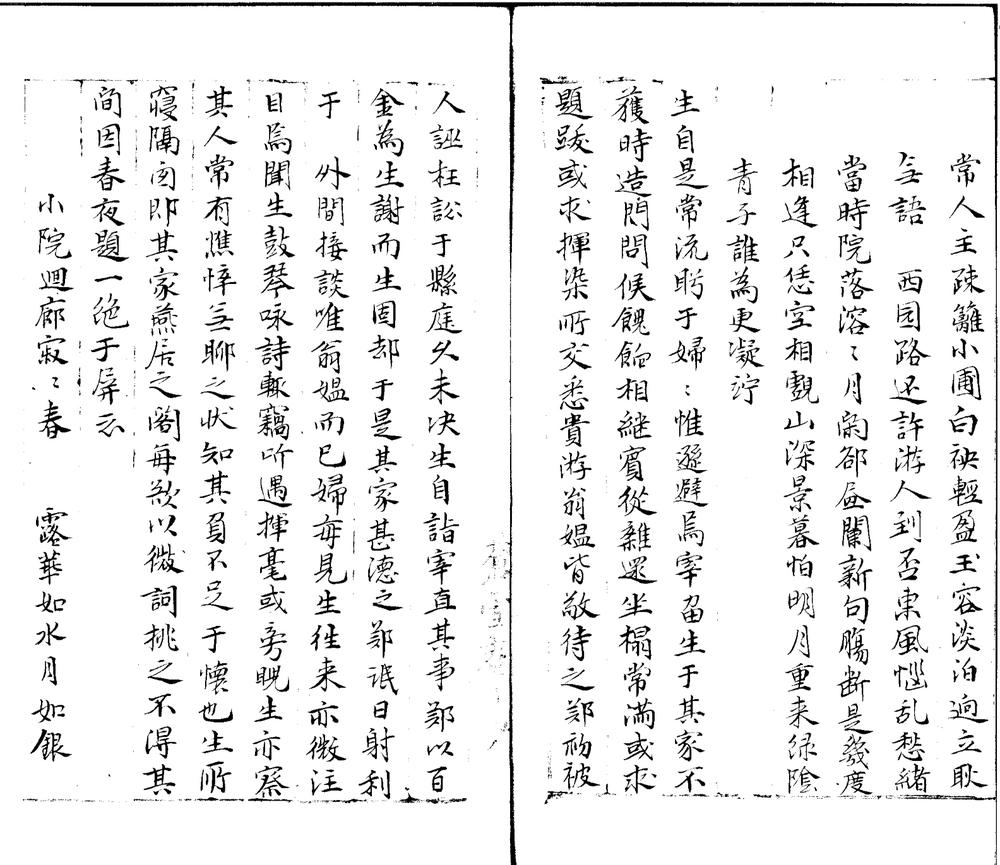 常人主疎籬小圃白袂輕盈玉容淡泊逈立耿
無語　西园路迟許游人到否東風惱乱愁緒
當時院落溶〻月閑部昼闌新句腸断是幾度
相逢只恁空相覷山深景暮怕明月重来绿陰
青子誰為更凝竚
生自是常流眄于婦〻惟遜避焉宰畄生于其家不
獲時造門問候餽餉相継賓從雜遝坐榻常滿或求
題跋或求揮染所交悉貴游翁媼皆敬待之鄭初被
人誣枉訟于縣庭久未决生自詣宰直其事鄭以百
金為生謝而生固却于是其家甚德之鄭氓日射利
于　外間接談唯翁媼而已婦每見生往来亦微注
目焉聞生鼓琴咏詩輒竊听遇揮毫或旁睨生亦察
其人常有憔悴無聊之状知其負不足于懷也生所
寝隔囱即其家燕居之閣每欲以微詞挑之不得其
间因春夜題一绝于屏云
小院廻廊寂〻春　露華如水月如銀